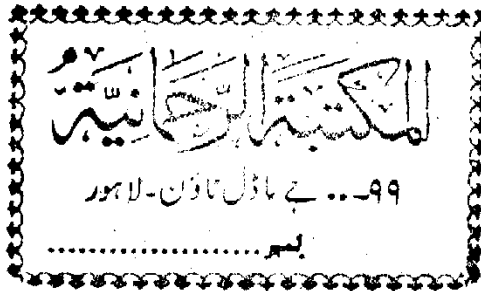 المکتبۃ الرحمانیۃ
۹۹... جے ماڈل ٹاؤن۔ لاہور
نمبر......................